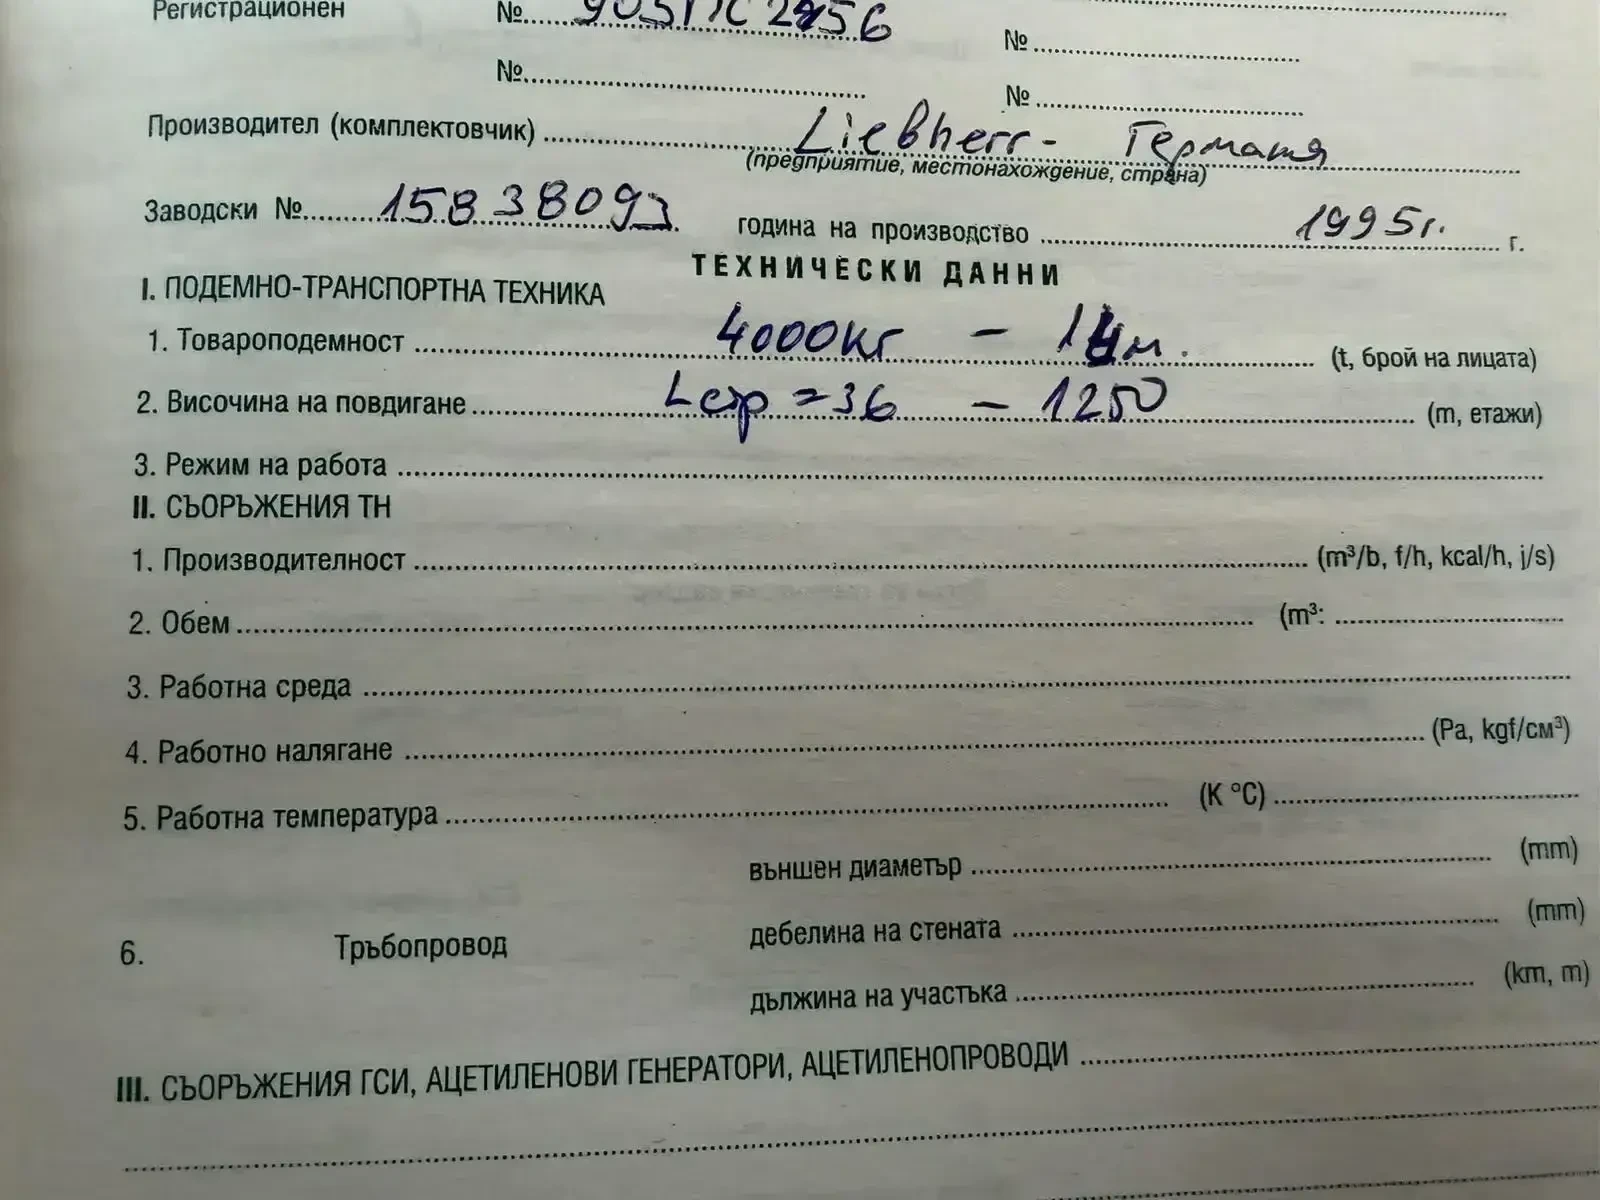 Регистрационен №
№
№
№
Производител (комплектовчик) Liebherr - Германия
(предприятие, местонахождение, страна)
Заводски № 15838093 година на производство 1995г. г.
ТЕХНИЧЕСКИ ДАННИ
I. ПОДЕМНО-ТРАНСПОРТНА ТЕХНИКА
1. Товароподемност 4000кг - м. (t, брой на лицата)
2. Височина на повдигане Lстр = 36 - 1250 (m, етажи)
3. Режим на работа
II. СЪОРЪЖЕНИЯ ТН
1. Производителност (m³/b, f/h, kcal/h, j/s)
2. Обем (m³:
3. Работна среда
4. Работно налягане (Pa, kgf/см³)
5. Работна температура (K °C)
външен диаметър (mm)
6. Тръбопровод дебелина на стената (mm)
дължина на участъка (km, m)
III. СЪОРЪЖЕНИЯ ГСИ, АЦЕТИЛЕНОВИ ГЕНЕРАТОРИ, АЦЕТИЛЕНОПРОВОДИ